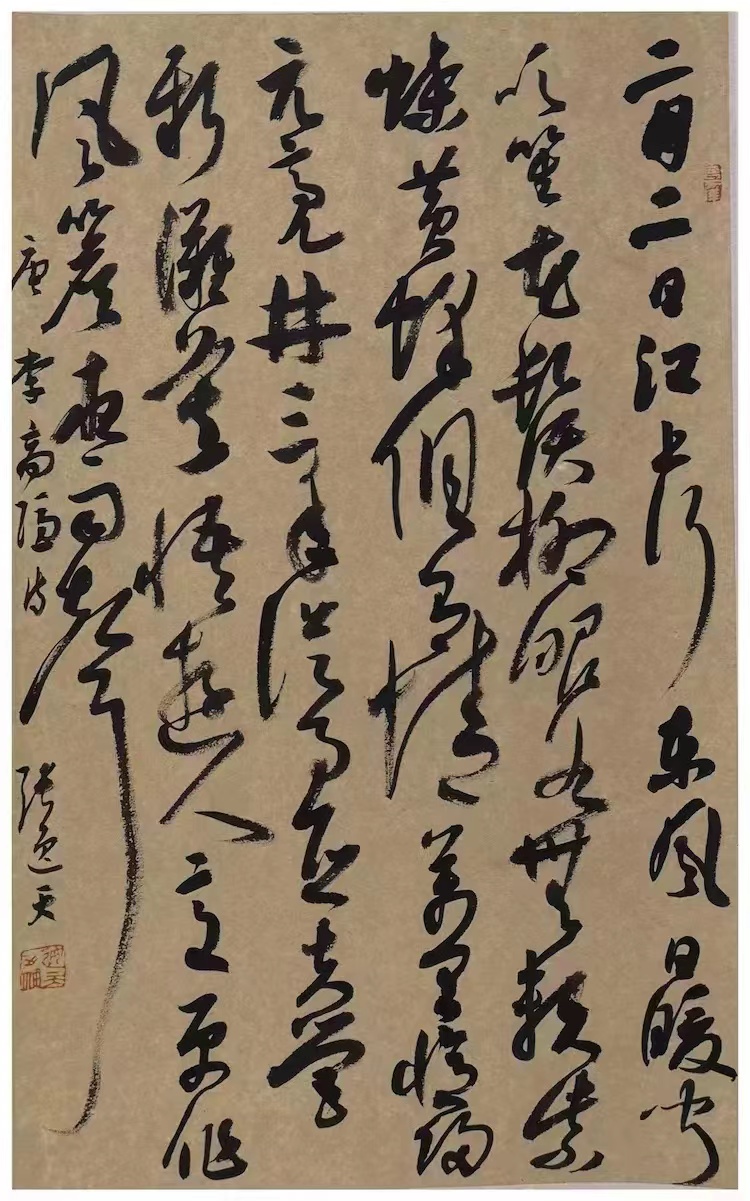 二月二日江上行东风日暖闻
吹笙花鬚柳眼各無賴紫
蝶黄蜂俱有情万里忆归
元亮井三年从事亚夫营
新灘莫悟遊人意更作
风簷夜雨声
唐李商隐诗 张